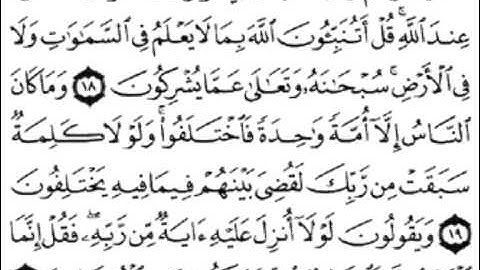 عِندَ ٱللَّهِۚ قُلۡ أَتُنَبِّـُٔونَ ٱللَّهَ بِمَا لَا يَعۡلَمُ فِي ٱلسَّمَٰوَٰتِ وَلَا
فِي ٱلۡأَرۡضِۚ سُبۡحَٰنَهُۥ وَتَعَٰلَىٰ عَمَّا يُشۡرِكُونَ ١٨ وَمَا كَانَ
ٱلنَّاسُ إِلَّآ أُمَّةٗ وَٰحِدَةٗ فَٱخۡتَلَفُواْۚ وَلَوۡلَا كَلِمَةٞ
سَبَقَتۡ مِن رَّبِّكَ لَقُضِيَ بَيۡنَهُمۡ فِيمَا فِيهِ يَخۡتَلِفُونَ
١٩ وَيَقُولُونَ لَوۡلَآ أُنزِلَ عَلَيۡهِ ءَايَةٞ مِّن رَّبِّهِۦۖ فَقُلۡ إِنَّمَا